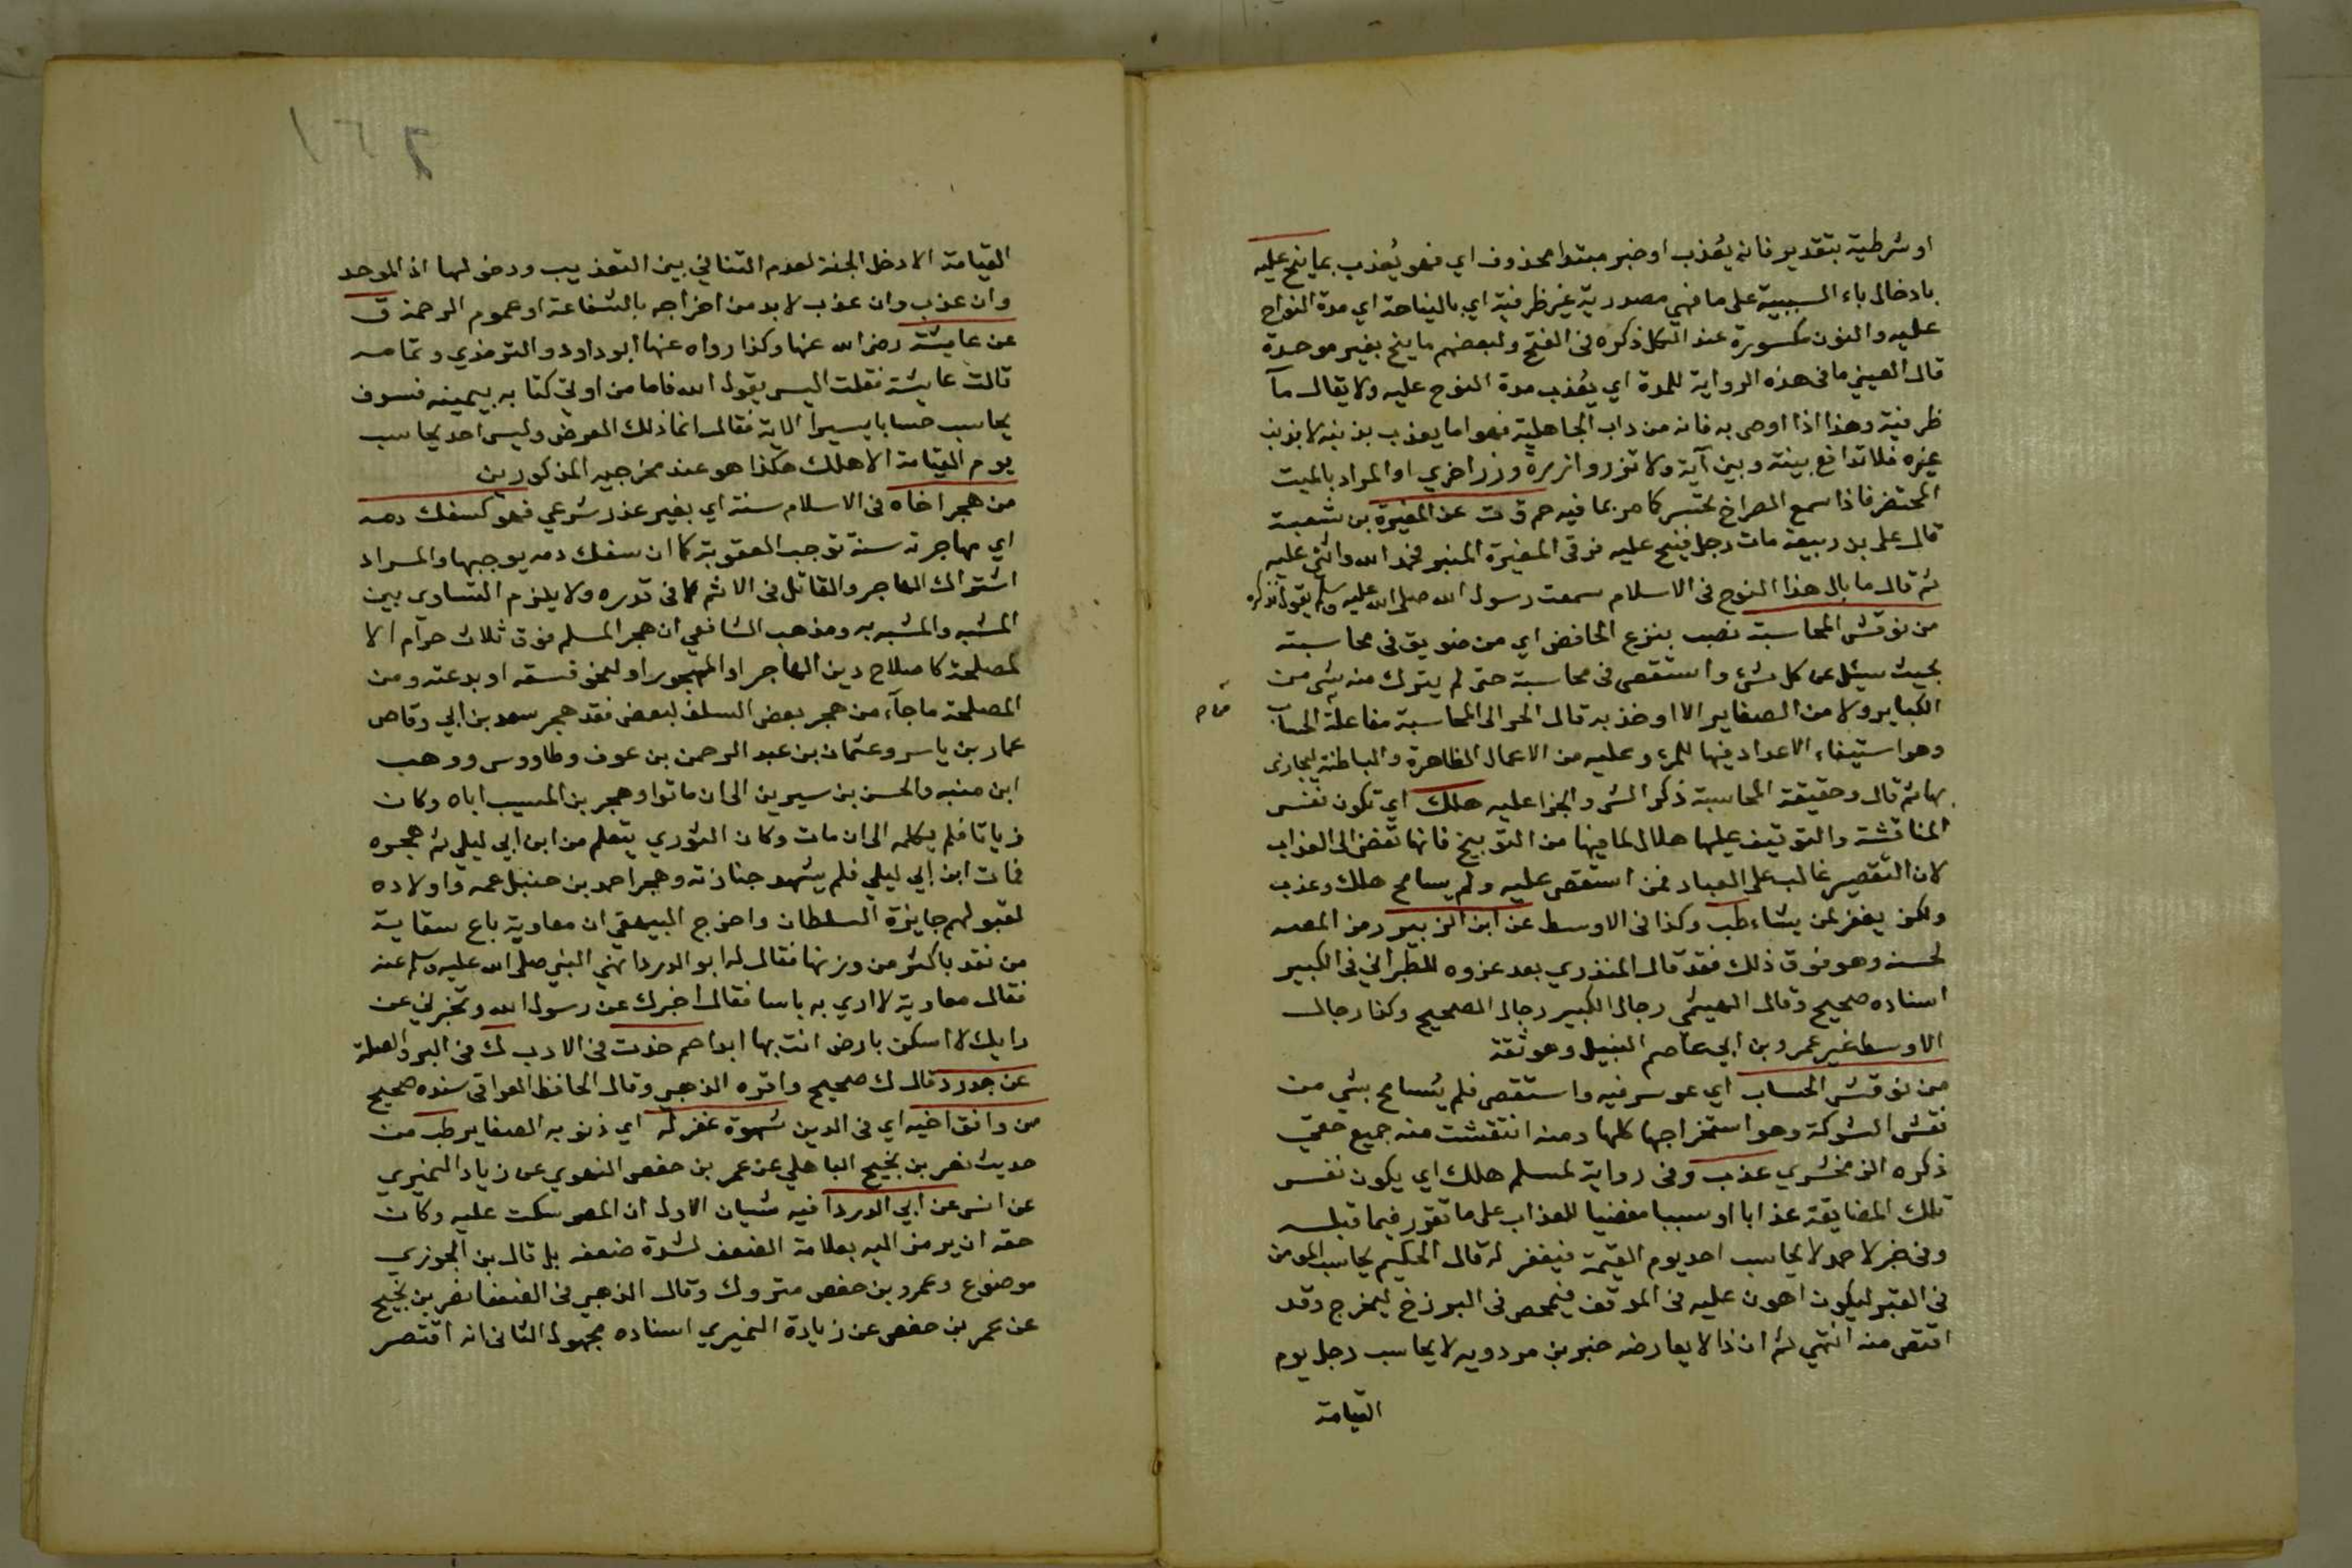 او شرطية بتقدير فانه يُعذب او خبر مبتدا محذوف اي فهو يُعذب بما نيح عليه
بادخال باء السببية على ما فهي مصدرية غير ظرفية اي بالنياحة اي مدة النواح
عليه والنون مكسورة عند الكل ذكره في الفتح ولبعضهم ما ينح بغير موحدة
قال العيني ما في هذه الرواية للمدة اي يُعذب مدة النوح عليه ولا يقال ما
ظرفية وهذا اذا اوصى به فانه من داب الجاهلية فهو اما يعذب بذنبه لا بذنب
غيره فلا تدافع بينه وبين آية ولا تزر وازرة وزر اخري او المراد بالميت
المحتضر فاذا سمع الصراخ تحسر كما مر بما فيه حم ق ت عن المغيرة بن شعبة
قال على بن ربيعة مات رجل فنيح عليه فرقى المغيرة المنبر فحمد الله واثنى عليه
ثم قال ما بال هذا النوح في الاسلام سمعت رسول الله صلى الله عليه وسلم يقول فذكره
من نوقش المحاسبة نصب بنزع الخافض اي من ضويق في محاسبته
بحيث سيئل عن كل شئ واستقصى في محاسبة حتى لم يترك منه شي من
الكباير ولا من الصغاير الا اوخذ به قال الحرالى المحاسبة مفاعلة الحساب
وهو استيفاء الاعداد فيها للمرء وعليه من الاعمال الظاهرة والباطنة ليجازى
بها ثم قال وحقيقة المحاسبة ذكر الشر والجزا عليه هلك اي تكون نفس
المناقشة والتوقيف عليها هلاك لما فيها من التوبيخ فانها تفضى الى العذاب
لان التقصير غالب على العباد فمن استقصى عليه ولم يسامح هلك وعذب
ولكن يغفر لمن يشاء طب وكذا في الاوسط عن ابن الزبير رمز المصه
لحسنه وهو فوق ذلك فقد قال المنذري بعد عزوه للطبراني في الكبير
اسناده صحيح وقال الهيثمي رجال الكبير رجال الصحيح وكذا رجال
الاوسط غير عمرو بن ابي عاصم النبيل وهو ثقة
من نوقش الحساب اي عوسر فيه واستقصى فلم يُسامح بشي من
نقش الشوكة وهو استخراجها كلها ومنه انتقشت منه جميع حقي
ذكره الزمخشري عذب وفي رواية لمسلم هلك اي يكون نفس
تلك المضايقة عذابا او سببا مفضيا للعذاب على ما تقرر فيما قبله
وفي خبر لاحمد لا يحاسب احد يوم القيمة فيغفر له قال الحكيم يحاسب المومن
في القبر ليكون اهون عليه في الموقف فيمحص في البرزخ ليخرج وقد
اقتص منه انتهي ثم ان ذا لا يعارضه خبر بن مردويه لا يحاسب رجل يوم
القيامة
القيامة الا دخل الجنة لعدم التنافي بين التعذيب ودخولها اذ الموحد
وان عذب وان عذب لا بد من اخراجه بالشفاعة او عموم الرحمة ق
عن عايشة رضى الله عنها وكذا رواه عنها ابو داود والترمذي وتمامه
قالت عايشة فقلت اليس يقول الله فاما من اوتي كتابه بيمينه فسوف
يحاسب حسابا يسيرا الاية فقال انما ذلك العرض وليس احد يحاسب
يوم القيامة الا هلك هكذا هو عند مخرجيه المذكورين
من هجر اخاه في الاسلام سنة اي بغير عذر شرعي فهو كسفك دمه
اي مهاجرته سنة توجب العقوبة كما ان سفك دمه يوجبها والمراد
اشتراك الهاجر والقاتل في الاثم لا في قدره ولا يلزم التساوى بين
المشبه والمشبه به ومذهب الشافعي ان هجر المسلم فوق ثلاث حرام الا
لمصلحة كاصلاح دين الهاجر او المهجور او لنحو فسقه او بدعته ومن
المصلحة ما جآء من هجر بعض السلف لبعض فقد هجر سعد بن ابي وقاص
عمار بن ياسر وعثمان بن عبد الرحمن بن عوف وطاووس ووهب
ابن منبه والحسن بن سيرين الى ان ماتوا وهجر بن المسيب اباه وكان
زياتا فلم يكلمه الى ان مات وكان الثوري يتعلم من ابن ابي ليلي ثم هجره
فمات ابن ابي ليلي فلم يشهد جنازته وهجر احمد بن حنبل عمه واولاده
لقبولهم جايزة السلطان واخرج البيهقي ان معاوية باع سقاية
من نقد باكثر من وزنها فقال له ابو الدردا نهي النبي صلى الله عليه وسلم عنه
فقال معاوية لا اري به باسا فقال اخبرك عن رسول الله وتخبرني عن
رايك لا اسكن بارض انت بها ابدا حم خدت في الادب ك في البر والصلة
عن حدرد قال ك صحيح واقره الذهبي وقال الحافظ العراقى سنده صحيح
من وافق اخيه اي في الدين شهوة غفر له اي ذنوبه الصغاير طب من
حديث نصر بن نجيح الباهلي عن عمر بن حفص النهدي عن زياد النميري
عن انس عن ابي الدردا فيه شيان الاول ان المصه سكت عليه وكان
حقه ان يرمز اليه بعلامة الضعف لشدة ضعفه بل قال بن الجوزي
موضوع وعمرو بن حفص متروك وقال الذهبي في الضعفا نصر بن نجيح
عن عمر بن حفص عن زيادة النميري اسناده مجهول الثانى انه اقتصر